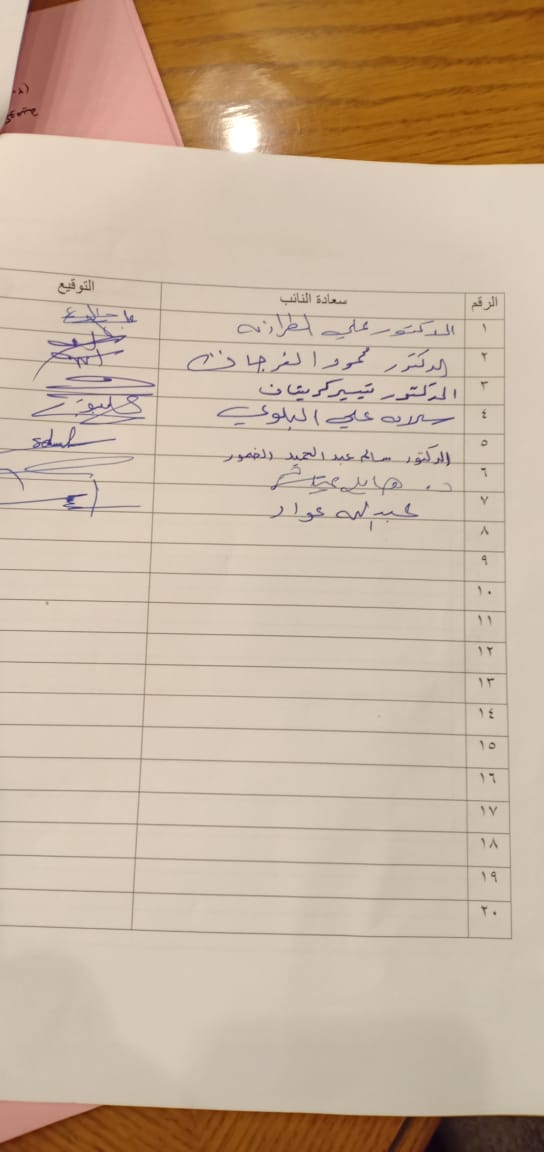 الرقم سعادة النائب التوقيع
١ الدكتور علي الطراونه
٢ الدكتور محمود الفرجات
٣ الدكتور تيسير كريشان
٤ سلامه علي البلوي
٥ الدكتور سالم عبد الحميد الضمور
٦ د. هايل عياش
٧ عبد الله عواد
٨
٩
١٠
١١
١٢
١٣
١٤
١٥
١٦
١٧
١٨
١٩
٢٠